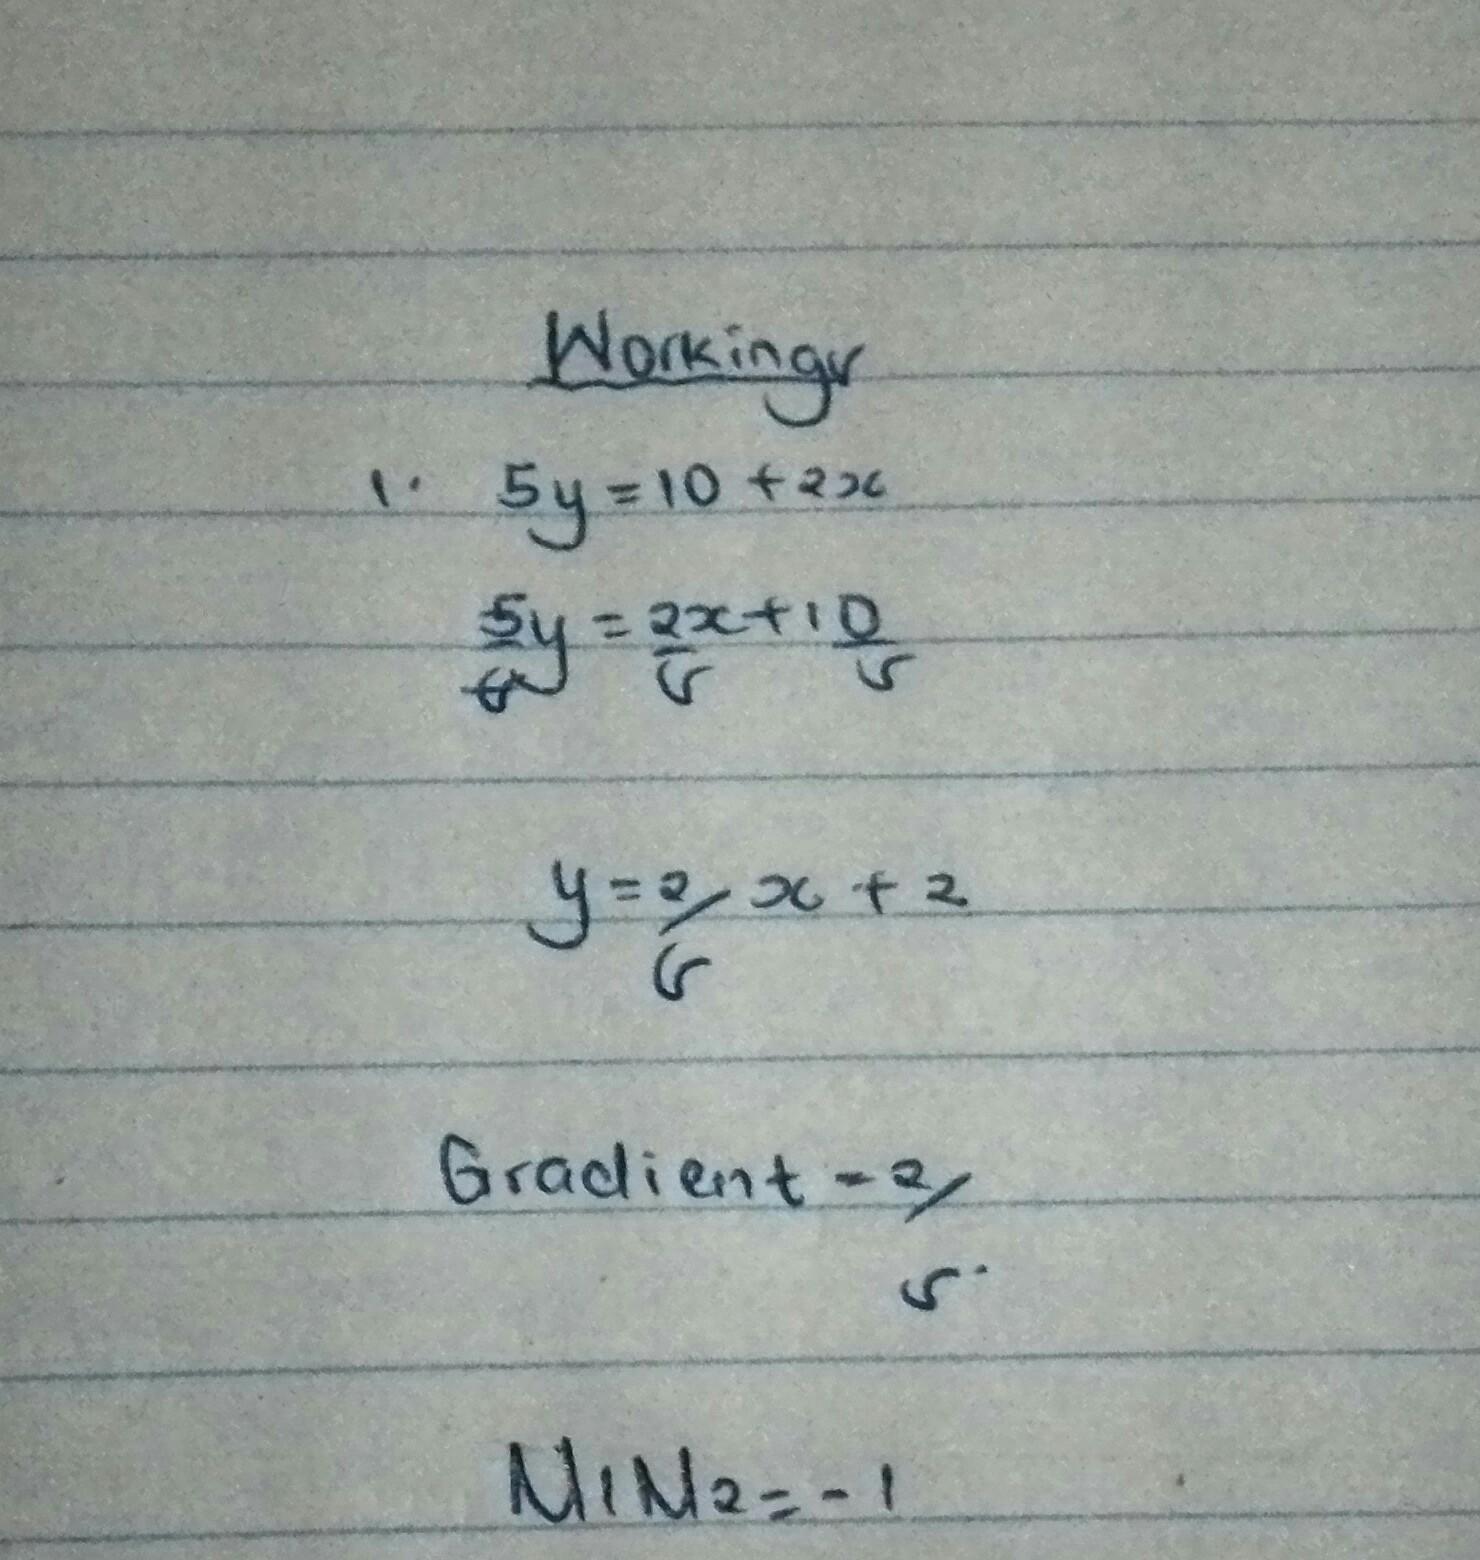 Workings
1. 5y = 10 + 2x
5y/5 = 2x/5 + 10/5
y = 2/5 x + 2
Gradient - 2/5.
M1M2 = -1